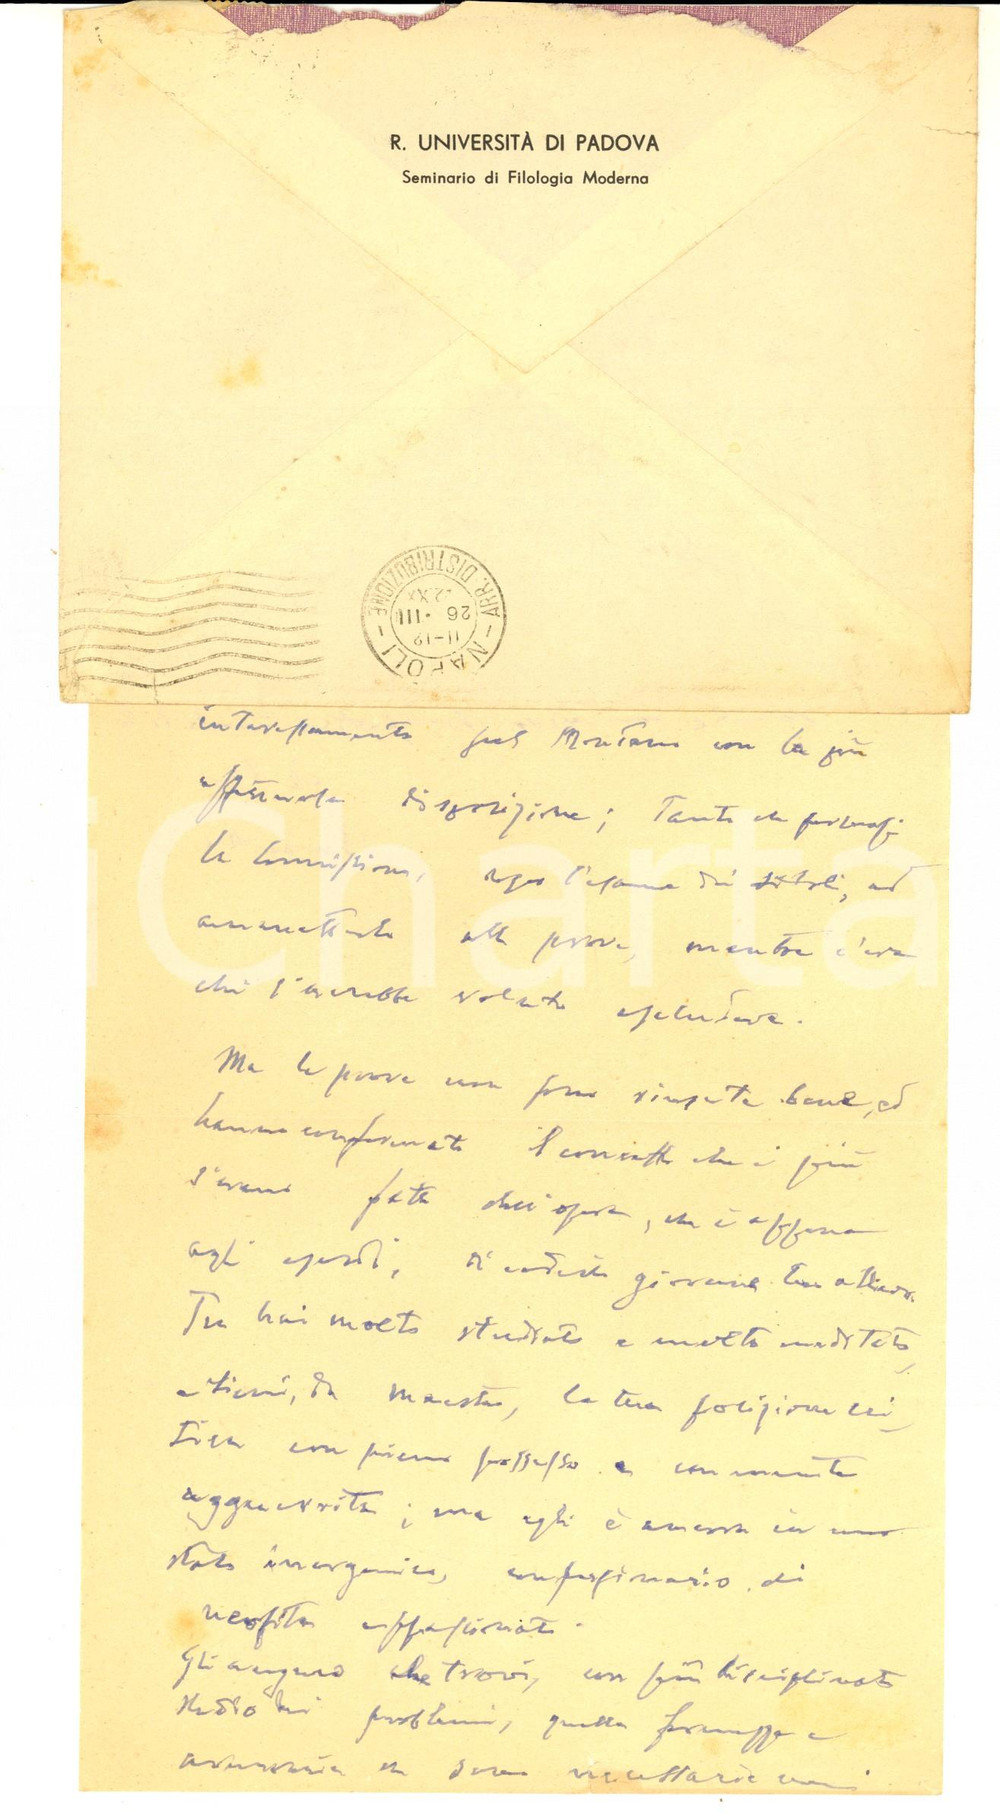 R. UNIVERSITÀ DI PADOVA
Seminario di Filologia Moderna
NAPOLI
ARR. DISTRIBUZIONE
11-12
26 • III
interessamento pel Montano con la più
affettuosa disposizione; tanto che persuasi
la Commissione, dopo l'esame dei titoli, ad
ammetterlo alle prove, mentre c'era
chi l'avrebbe voluto escludere.
Ma le prove non sono riuscite bene, ed
hanno confermato il concetto che i più
s'erano fatti dell'opera, che è appena
agli esordi, di codesto giovane tuo allievo.
Tu hai molto studiato e molto meditato,
e tieni, da maestro, la tua posizione cri-
tica con pieno possesso e con mente
agguerrita; ma egli è ancora in uno
stato inorganico, confusionario di
neofita appassionato.
Gli auguro che trovi, con più disciplinato
studio dei problemi, quella fermezza e
armonia che sono necessarie
Charta